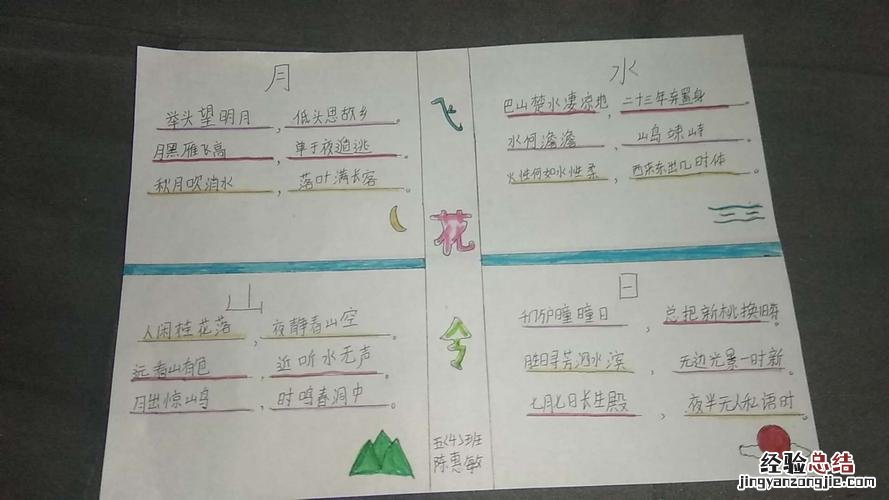 月
举头望明月，低头思故乡。
月黑雁飞高，单于夜遁逃。
秋月吹消水，落叶满长客。
水
巴山楚水凄凉地，二十三年弃置身。
水何澹澹，山岛竦峙。
火性何如水性柔，西来东出几时休
飞花令
山
人闲桂花落，夜静春山空。
远看山有色，近听水无声。
月出惊山鸟，时鸣春涧中。
日
千门万户曈曈日，总把新桃换旧符。
胜日寻芳泗水滨，无边光景一时新。
七月七日长生殿，夜半无人私语时。
五(4)班
陈惠敏
经验总结
jingyanzongjie.com